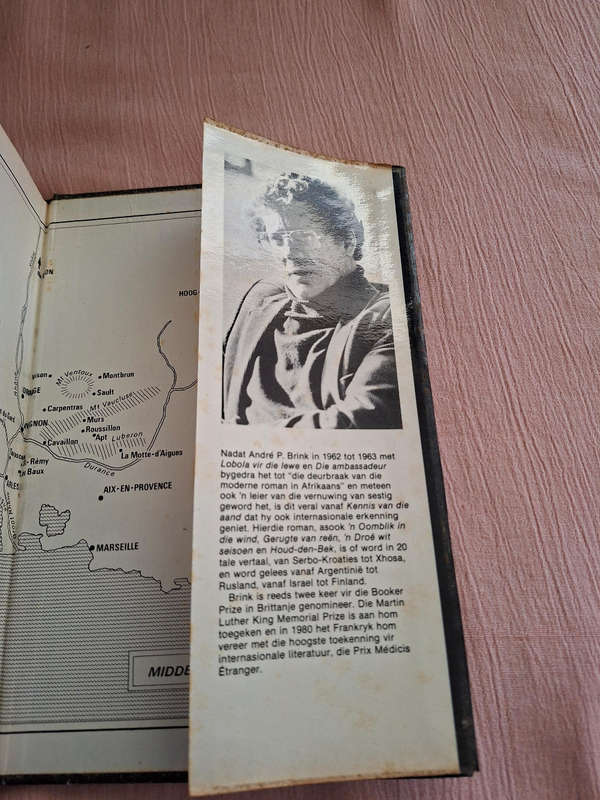 HOOG-
Mt Ventoux
Montbrun
Sault
Carpentras
Mt Vaucluse
Murs
Roussillon
Apt
Luberon
Cavaillon
La Motte-d'Aigues
Durance
AIX-EN-PROVENCE
MARSEILLE
MIDDE
Nadat André P. Brink in 1962 tot 1963 met
Lobola vir die lewe en Die ambassadeur
bygedra het tot "die deurbraak van die
moderne roman in Afrikaans" en meteen
ook 'n leier van die vernuwing van sestig
geword het, is dit veral vanaf Kennis van die
aand dat hy ook internasionale erkenning
geniet. Hierdie roman, asook 'n Oomblik in
die wind, Gerugte van reën, 'n Droë wit
seisoen en Houd-den-Bek, is of word in 20
tale vertaal, van Serbo-Kroaties tot Xhosa,
en word gelees vanaf Argentinië tot
Rusland, vanaf Israel tot Finland.
Brink is reeds twee keer vir die Booker
Prize in Brittanje genomineer. Die Martin
Luther King Memorial Prize is aan hom
toegeken en in 1980 het Frankryk hom
vereer met die hoogste toekenning vir
internasionale literatuur, die Prix Médicis
Étranger.